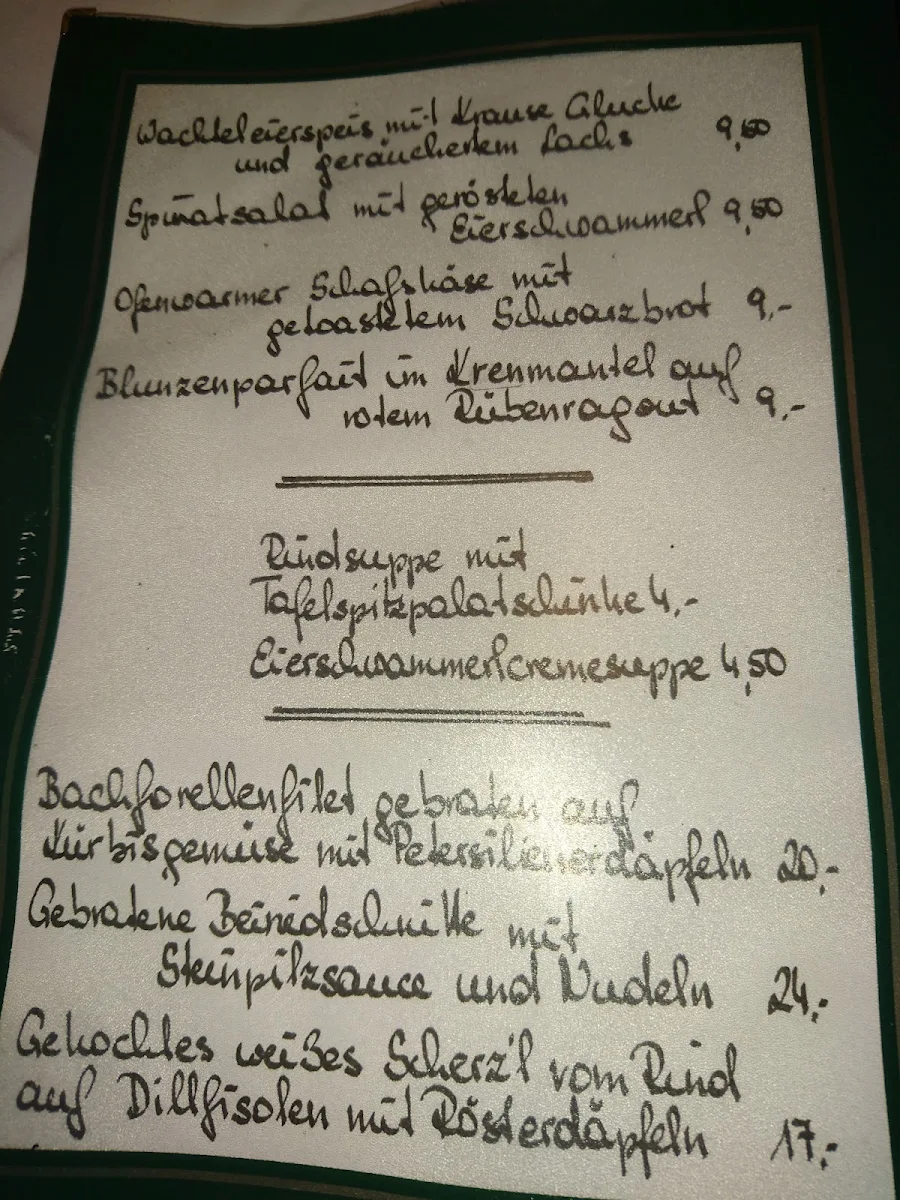 Wachteleierspeis mit Krause Glucke
und geräuchertem Lachs 9,50
Spinatsalat mit gerösteten
Eierschwammerl 9,50
Ofenwarmer Schafskäse mit
getoastetem Schwarzbrot 9,-
Blunzenparfait im Krenmantel auf
rotem Rübenragout 9,-
Rindsuppe mit
Tafelspitzpalatschinke 4,-
Eierschwammerlcremesuppe 4,50
Bachforellenfilet gebraten auf
Kürbisgemüse mit Petersilienerdäpfeln 20,-
Gebratene Beiriedschnitte mit
Steinpilzsauce und Nudeln 24,-
Gekochtes weißes Scherz'l vom Rind
auf Dillfisolen mit Rösterdäpfeln 17,-